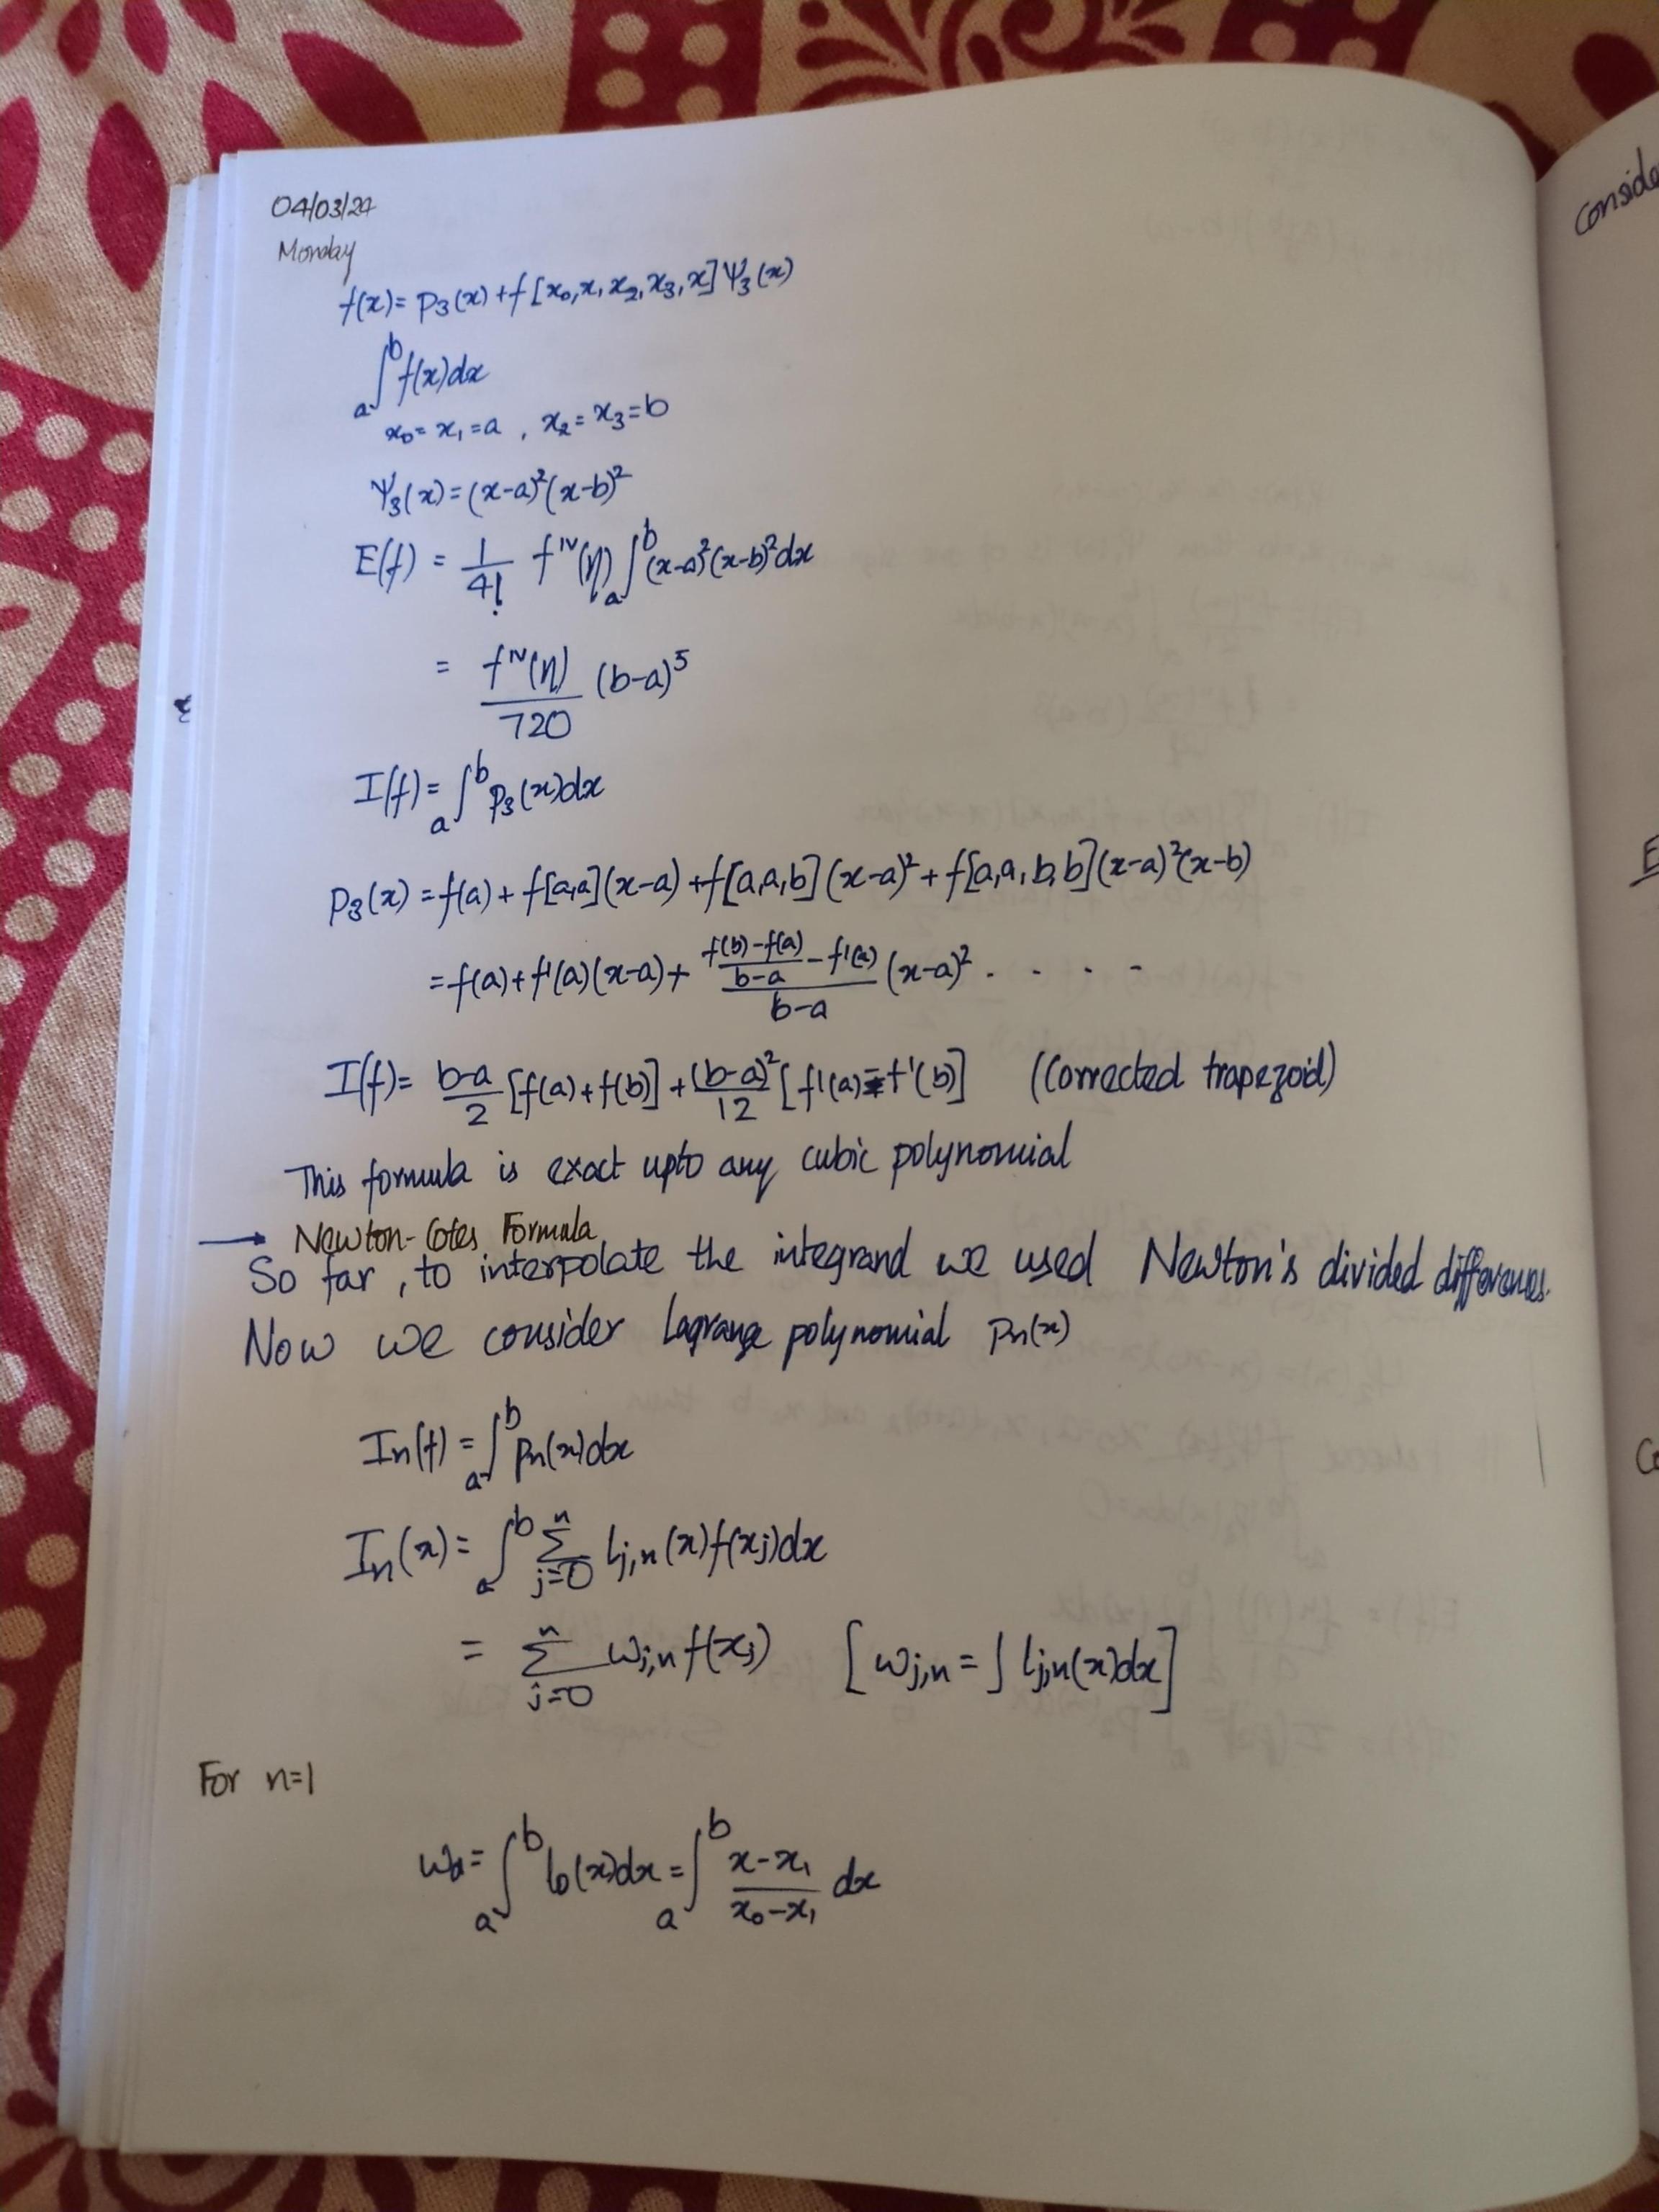 04/03/24
Monday
f(x) = p₃(x) + f[x₀, x₁, x₂, x₃, x] Ψ₃(x)
∫ₐᵇ f(x)dx
x₀ = x₁ = a , x₂ = x₃ = b
Ψ₃(x) = (x-a)²(x-b)²
E(f) = 1/4! fᴵⱽ(η) ∫ₐᵇ (x-a)²(x-b)²dx
= fᴵⱽ(η)/720 (b-a)⁵
I(f) = ∫ₐᵇ p₃(x)dx
p₃(x) = f(a) + f[a,a](x-a) + f[a,a,b](x-a)² + f[a,a,b,b](x-a)²(x-b)
= f(a) + f'(a)(x-a) + ((f(b)-f(a))/(b-a) - f'(a))/(b-a) (x-a)² . . . .
I(f) = (b-a)/2 [f(a)+f(b)] + (b-a)²/12 [f'(a) - f'(b)] (Corrected trapezoid)
This formula is exact upto any cubic polynomial
→ Newton-Cotes Formula
So far, to interpolate the integrand we used Newton's divided differences.
Now we consider Lagrange polynomial pₙ(x)
Iₙ(f) = ∫ₐᵇ pₙ(x)dx
Iₙ(x) = ∫ₐᵇ Σⱼ₌₀ⁿ lⱼ,ₙ(x)f(xⱼ)dx
= Σⱼ₌₀ⁿ wⱼ,ₙ f(xⱼ) [wⱼ,ₙ = ∫ lⱼ,ₙ(x)dx]
For n=1
w₀ = ∫ₐᵇ l₀(x)dx = ∫ₐᵇ (x-x₁)/(x₀-x₁) dx